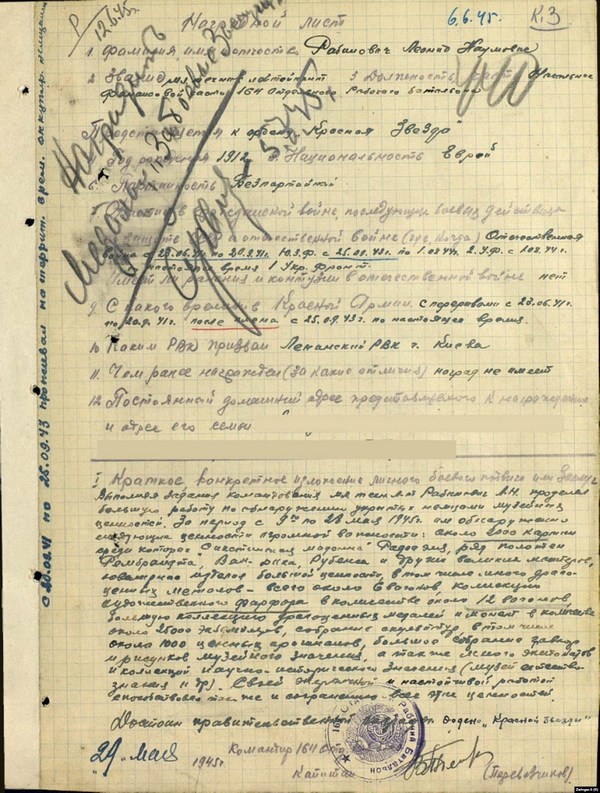 12.6.45.
Наградной лист
6.6.45.
К.3
1. Фамилия имя отчество Рабинович Леонид Наумович
2 Звание мл. техник лейтенант 3 Должность Начальник
финансовой части 164 Отдельного Рабочего батальона
Представляется к ордену "Красная Звезда"
Год рождения 1912 5. Национальность Еврей
6. Партийность Безпартойный
войне, последующих боевых действиях
отечественной войне (где, когда) Отечественная
война с 23.06.41г. по 20.9.41г. Ю.З.Ф. с 25.09.43г. по 1.08.44г. 2.У.Ф. с 1.08.44г.
время 1 Укр. фронт.
ранения и контузии в отечественной войне нет
9. С какого времени в Красной Армии с перерывами с 23.06.41г.
по 20.9.41г. после плена с 25.09.43г. по настоящее время.
10 Каким РВК призван Ленинский РВК г. Киева
11. Чем ранее награжден (за какие отличия) наград не имеет
12. Постоянный домашний адрес представляемого к награждению
и адрес его семьи
Наградить
Медалью "За боевые Заслуги"
5.7.45.
с 20.09.41 по 25.09.43 проживал на территор. врем. оккупир. немцами
I Краткое, конкретное изложение личного боевого подвига или Заслуг
Выполняя задания командования мл. техн. л-т Рабинович Л.Н. проделал
большую работу по обнаружению укрытых немцами музейных
ценностей. За период с 9го по 28 мая 1945г. он обнаружил
следующие ценности огромной важности: около 2000 картин
среди которых Сикстинская мадонна Рафаэля, ряд полотен
Рембрандта, Ван-Дика, Рубенса и других великих мастеров,
ювелирные изделия большой ценности, в том числе много драго-
ценных металов - всего около 6 вагонов, коллекцию
художественного фарфора в количестве около 12 вагонов,
большую коллекцию драгоценных медалей и монет в количестве
около 2500 экземпляров, собрание скульптур, в том числе
около 1000 ценных оригиналов, большое собрание гравюр
и рисунков музейного значения, а также много экспонатов
и коллекций научно-исторического значения (музей естество-
знания и др). Своей энергичной и настойчивой работой
способствовал розыску и сохранению всех этих ценностей.
Достоин правительственной награды ордена "Красной звезды"
Командир 164
29 мая 1945г. Капитан
(Перевозчиков)
Рабочий Батальон